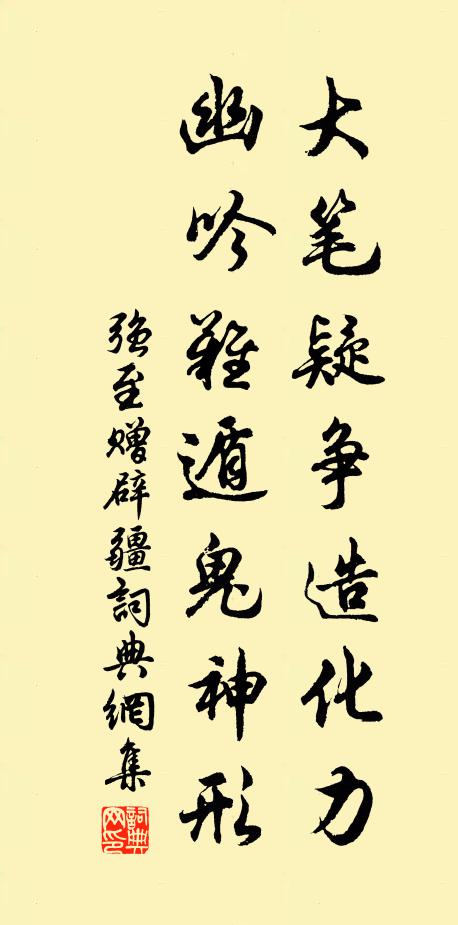 大笔疑争造化力
幽吟难遁鬼神形
强至赠辟疆詞典網集
詞典网印